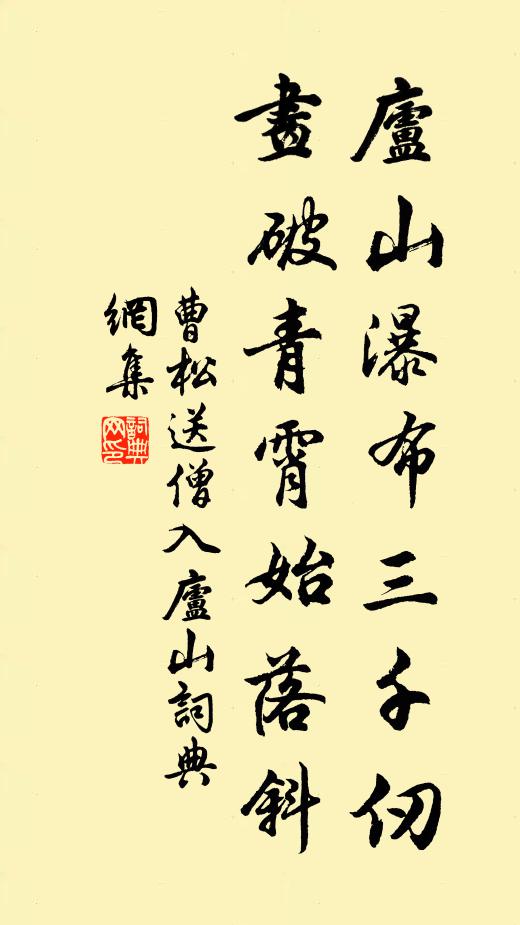 廬山瀑布三千仞
畫破青霄始落斜
曹松送僧入廬山詞典
網集
詞典
网印